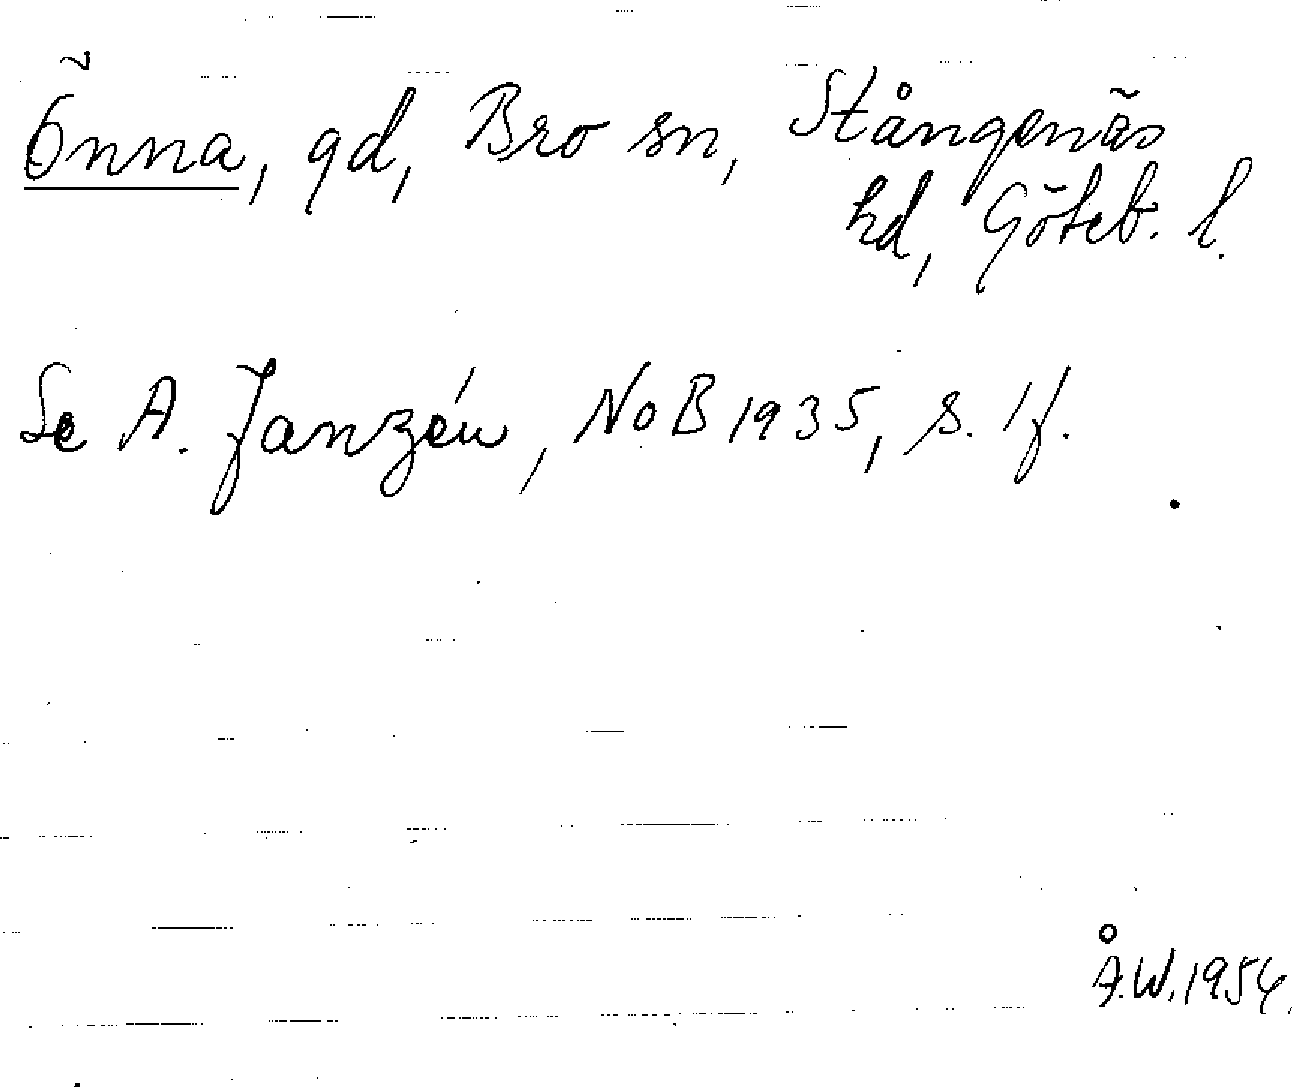 Önna, gd, Bro sn, Stångenäs
hd, Göteb. l.
Se A. Janzén, NoB 1935, s. 1f.
Å.W. 1954.